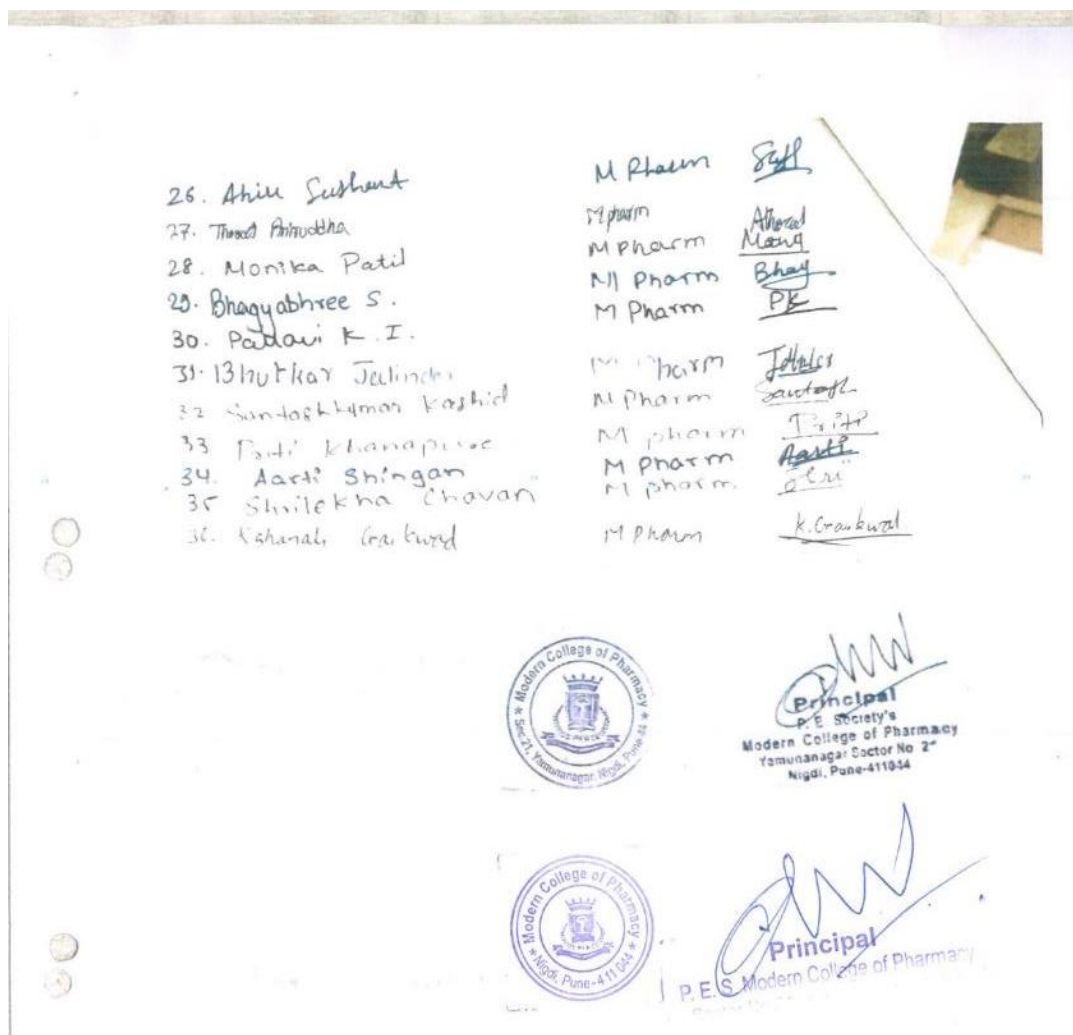 26. Ahiu Sushant M Pharm
27. Thorat Aniruddha M pharm AThorat
28. Monika Patil M Pharm
29. Bhagyabhree S. M Pharm Bhag
30. Pallavi K. I. M Pharm PK
31. Bhutkar Jalinder M Pharm
32 Santoshkumar Kashid M Pharm Santosh
33 Priti Khanapure M pharm Priti
34. Aarti Shingan M Pharm Aarti
35 Shrilekha Chavan M pharm Shri
36. Gaikwad M Pharm K. Gaikwad
* Modern College of Pharmacy *
Sec.21, Yamunanagar, Nigdi, Pune-44
Principal
P. E. Society's
Modern College of Pharmacy
Yamunanagar Sector No 21
Nigdi, Pune-411044
Modern College of Pharmacy
* Nigdi, Pune-411 044 *
Principal
P. E. S. Modern College of Pharmacy